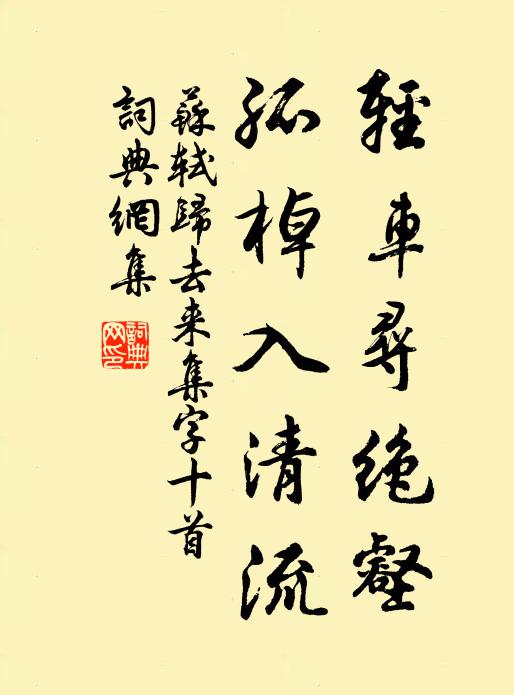 輕車尋絶壑
孤棹入清流
蘇軾歸去来集字十首
詞典網集
詞典網印